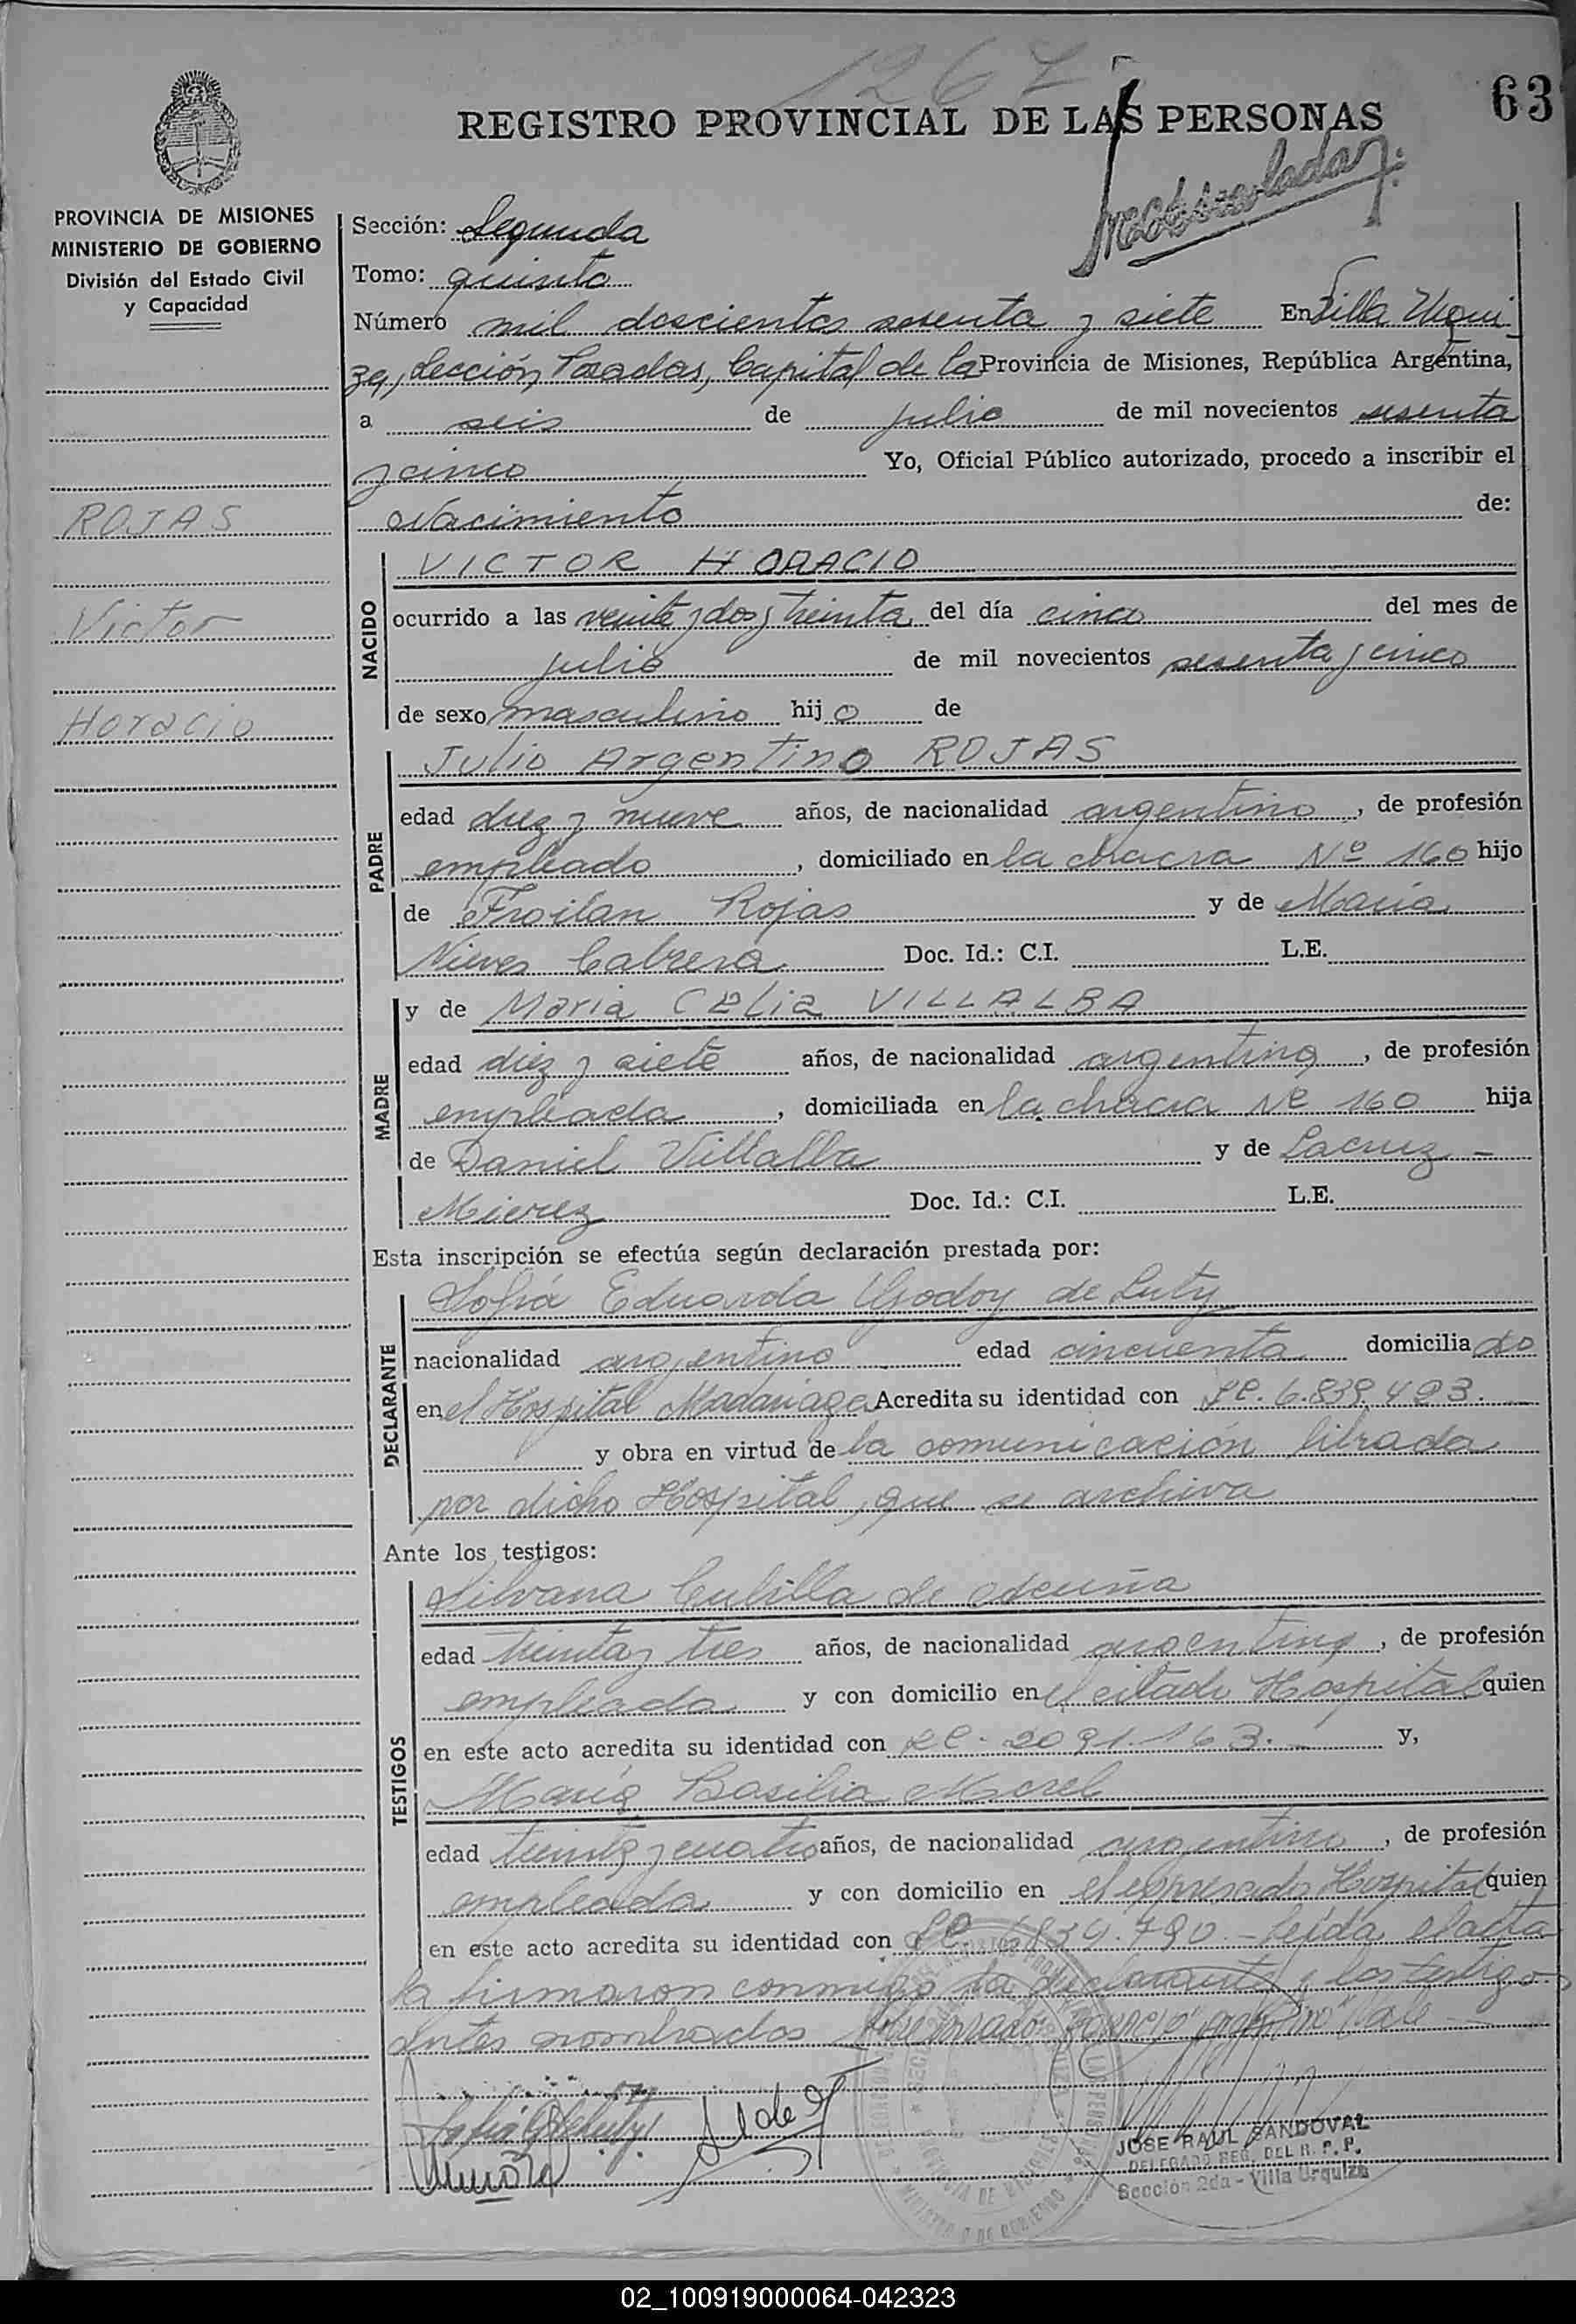 1267
63
REGISTRO PROVINCIAL DE LAS PERSONAS
PROVINCIA DE MISIONES
MINISTERIO DE GOBIERNO
División del Estado Civil
y Capacidad
ROJAS
Victor
Horacio
Sección: Segunda
Tomo: quinto
Número mil doscientos sesenta y siete En Villa Urqui-
za, Sección Posadas, Capital de la Provincia de Misiones, República Argentina,
a seis de julio de mil novecientos sesenta
y cinco Yo, Oficial Público autorizado, procedo a inscribir el
Nacimiento de:
NACIDO
VICTOR HORACIO
ocurrido a las veinte y dos y treinta del día cinco del mes de
julio de mil novecientos sesenta y cinco
de sexo masculino hijo de
PADRE
Julio Argentino ROJAS
edad diez y nueve años, de nacionalidad argentino, de profesión
empleado, domiciliado en la chacra Nº 160 hijo
de Froilan Rojas y de María
Nieves Cabrera Doc. Id.: C.I. L.E.
MADRE
y de Maria Celia VILLALBA
edad diez y siete años, de nacionalidad argentina, de profesión
empleada, domiciliada en la chacra Nº 160 hija
de Daniel Villalba y de Lacruz -
Mierez Doc. Id.: C.I. L.E.
Esta inscripción se efectúa según declaración prestada por:
DECLARANTE
Sofía Eduarda Godoy de Luty
nacionalidad argentina edad cincuenta domiciliado
en el Hospital Madariaga Acredita su identidad con
y obra en virtud de la comunicación librada
por dicho Hospital, que se archiva
Ante los testigos:
TESTIGOS
Silvana Cubilla de Acuña
edad treinta y tres años, de nacionalidad argentina, de profesión
empleada y con domicilio en el citado Hospital quien
en este acto acredita su identidad con y,
María Basilia Morel
edad treinta y cuatro años, de nacionalidad argentina, de profesión
empleada y con domicilio en el expresado Hospital quien
en este acto acredita su identidad con leída el acta
la firmaron conmigo la declarante y los testigos
antes nombrados Vale
JOSE RAUL SANDOVAL
DELEGADO REG. DEL R. P. P.
Sección 2da - Villa Urquiza
02_100919000064-042323